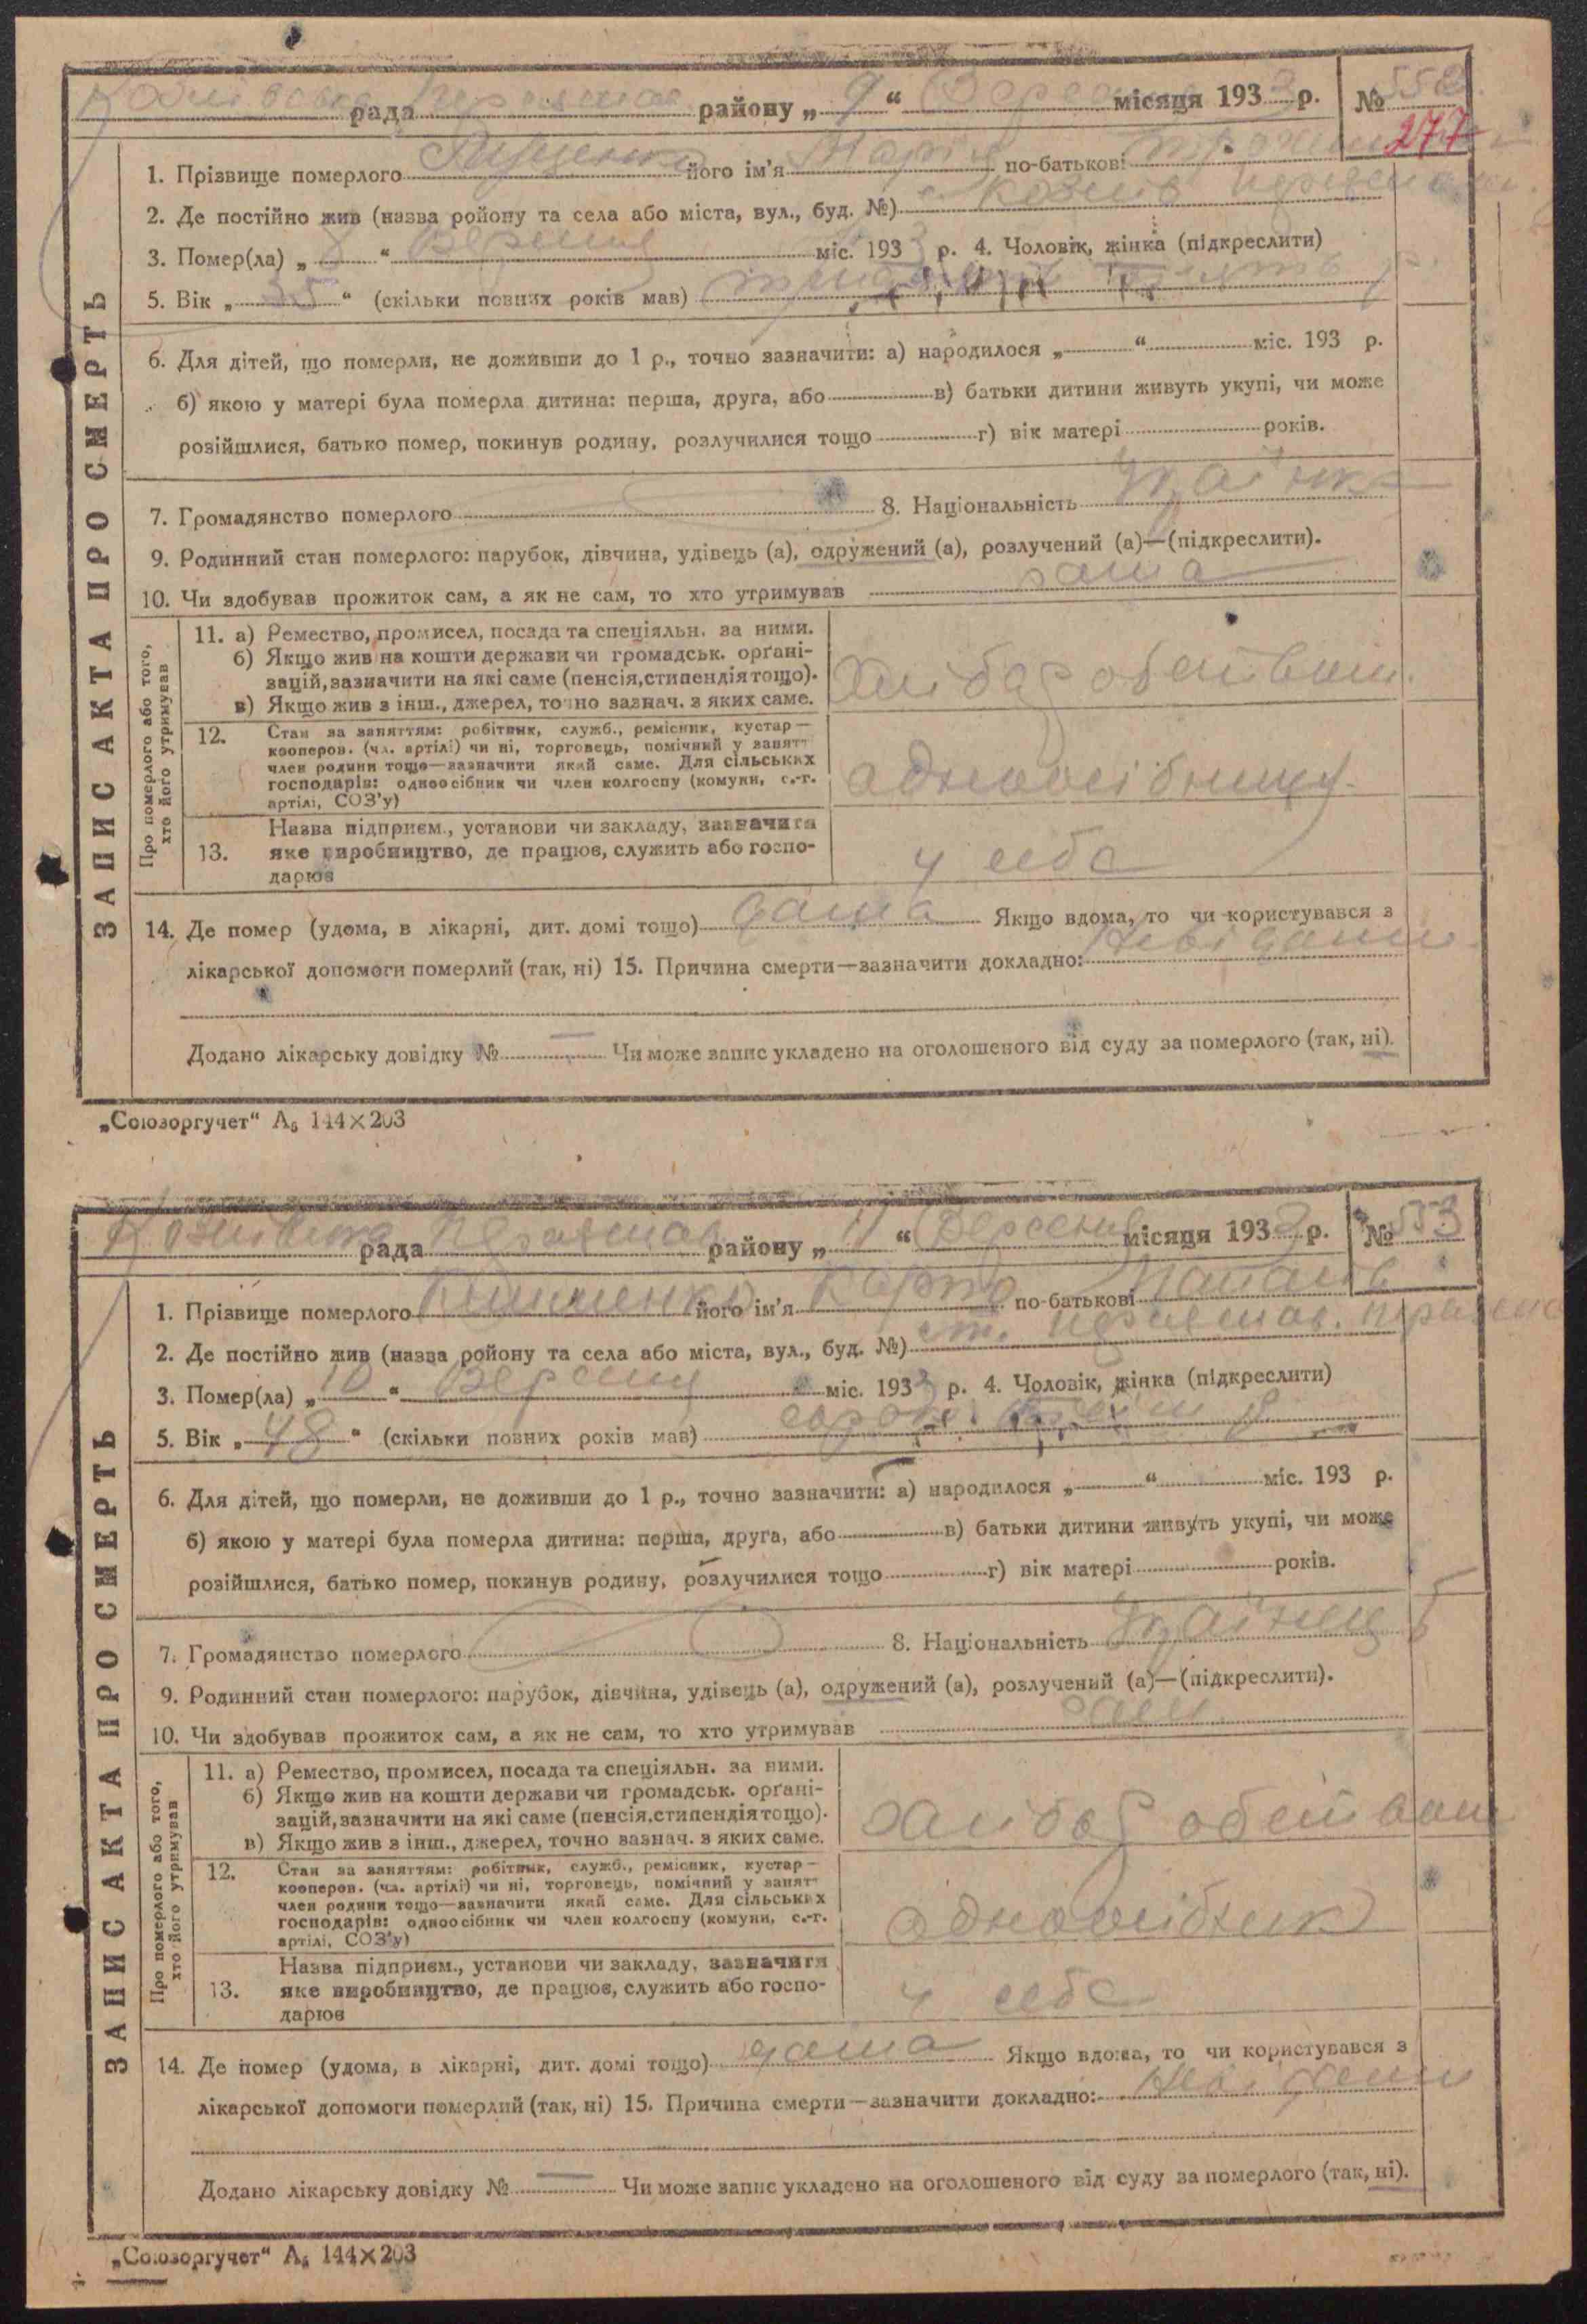 рада районy „ 9 “ Вересня місяця 1933 р. № 552
277
1. Прізвище померлого його ім'я Марія по-батькові
2. Де постійно жив (назва ройону та села або міста, вул., буд. №) с. Козлів
3. Помер(ла) „ 8 “ Вересня міс. 1933 р. 4. Чоловік, жінка (підкреслити)
5. Вік „ 35 “ (скільки повних років мав) тридцять пять р.
6. Для дітей, що померли, не доживши до 1 р., точно зазначити: а) народилося „ “ міс. 193 р.
б) якою у матері була померла дитина: перша, друга, або в) батьки дитини живуть укупі, чи може
розійшлися, батько помер, покинув родину, розлучилися тощо г) вік матері років.
7. Громадянство померлого 8. Національність
9. Родинний стан померлого: парубок, дівчина, удівець (а), одружений (а), розлучений (а)—(підкреслити).
10. Чи здобував прожиток сам, а як не сам, то хто утримував сама
ЗАПИС АКТА ПРО СМЕРТЬ
Про померлого або того, хто його утримував
11. а) Ремество, промисел, посада та спеціяльн. за ними.
б) Якщо жив на кошти держави чи громадськ. орґані-
зацій, зазначити на які саме (пенсія, стипендія тощо).
в) Якщо жив з інш., джерел, точно зазнач. з яких саме.
12. Стан за заняттям: робітник, служб., ремісник, кустар—
кооперов. (чл. артілі) чи ні, торговець, помічний у занятт
член родини тощо—зазначити який саме. Для сільських
господарів: одноосібник чи член колгоспу (комуни, с.-г.
артілі, СОЗ'у)
одноосібниця
Назва підприєм., установи чи закладу, зазначити
13. яке виробництво, де працює, служить або госпо-
дарює
у себе
14. Де помер (удома, в лікарні, дит. домі тощо) дома Якщо вдома, то чи користувався з
лікарської допомоги померлий (так, ні) 15. Причина смерти—зазначити докладно:
Додано лікарську довідку № — Чи може запис укладено на оголошеного від суду за померлого (так, ні).
„Союзоргучет“ А5 144×203
рада районy „ 11 “ Вересня місяця 1933 р. № 553
1. Прізвище померлого його ім'я Карпо по-батькові
2. Де постійно жив (назва ройону та села або міста, вул., буд. №) ст. Переяслав.
3. Помер(ла) „ 10 “ Вересня міс. 1933 р. 4. Чоловік, жінка (підкреслити)
5. Вік „ 48 “ (скільки повних років мав) сорок вісім р.
6. Для дітей, що померли, не доживши до 1 р., точно зазначити: а) народилося „ “ міс. 193 р.
б) якою у матері була померла дитина: перша, друга, або в) батьки дитини живуть укупі, чи може
розійшлися, батько помер, покинув родину, розлучилися тощо г) вік матері років.
7. Громадянство померлого 8. Національність
9. Родинний стан померлого: парубок, дівчина, удівець (а), одружений (а), розлучений (а)—(підкреслити).
10. Чи здобував прожиток сам, а як не сам, то хто утримував сам
ЗАПИС АКТА ПРО СМЕРТЬ
Про померлого або того, хто його утримував
11. а) Ремество, промисел, посада та спеціяльн. за ними.
б) Якщо жив на кошти держави чи громадськ. орґані-
зацій, зазначити на які саме (пенсія, стипендія тощо).
в) Якщо жив з інш., джерел, точно зазнач. з яких саме.
12. Стан за заняттям: робітник, служб., ремісник, кустар—
кооперов. (чл. артілі) чи ні, торговець, помічний у занятт
член родини тощо—зазначити який саме. Для сільських
господарів: одноосібник чи член колгоспу (комуни, с.-г.
артілі, СОЗ'у)
одноосібник
Назва підприєм., установи чи закладу, зазначити
13. яке виробництво, де працює, служить або госпо-
дарює
у себе
14. Де помер (удома, в лікарні, дит. домі тощо) дома Якщо вдома, то чи користувався з
лікарської допомоги померлий (так, ні) 15. Причина смерти—зазначити докладно:
Додано лікарську довідку № — Чи може запис укладено на оголошеного від суду за померлого (так, ні).
„Союзоргучет“ А5 144×203